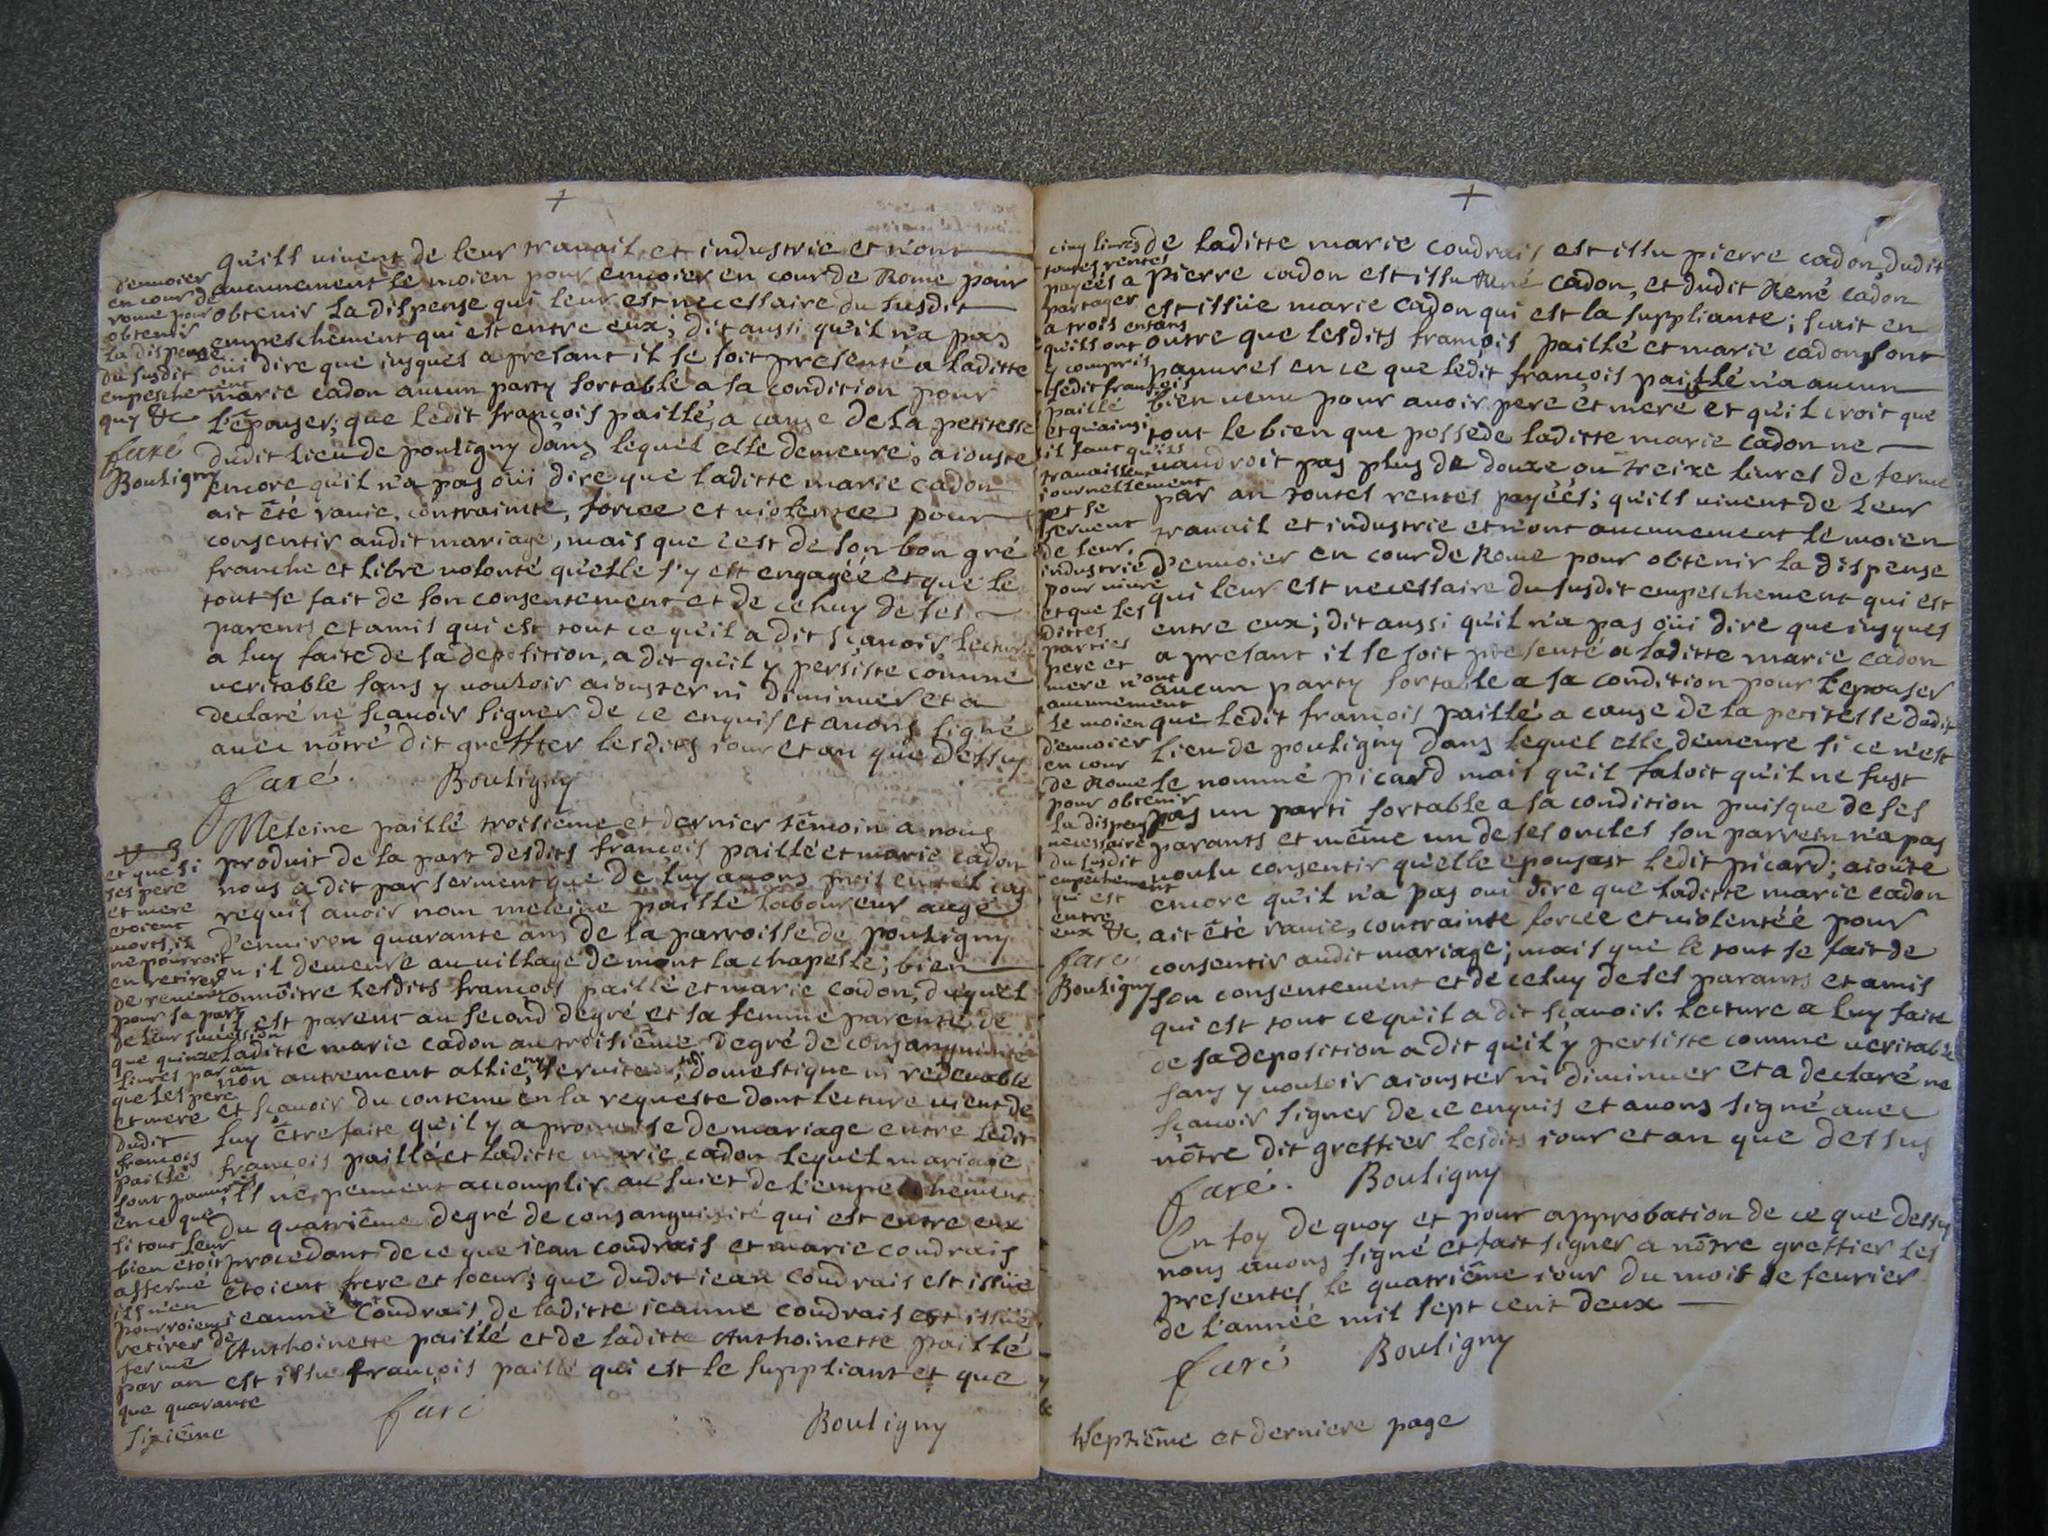 +
qu'ils vivent de leur travail et industrie et n'ont
aucunement le moien pour envoier en cour de Rome pour
obtenir la dispense qui leur est necessaire du susdit
empeschement qui est entre eux; dit aussi qu'il n'a pas
oui dire que jusques a present il se soit presenté a laditte
marie cadon aucun party sortable a sa condition pour
l'épouser; que ledit françois paillé, a cause de la petitesse
dudit lieu de pouligny dans lequel elle demeure; aiouste
encore qu'il n'a pas oüi dire que laditte marie cadon
ait été ravie, contrainte, forcee et violentee pour
consentir audit mariage, mais que c'est de son bon gré
franche et libre volonté qu'elle s'y est engagéé et que le
tout se fait de son consentement et de celuy de ses
parents et amis qui est tout ce qu'il a dit sçavoir lecture
a luy faite de sa deposition, a dit qu'il y persiste comme
veritable sans y vouloir aiouster ni diminuer et a
declaré ne sçavoir signer de ce enquis et avons signé
avec nôtre dit greffier lesdits iour et an que dessus
faré. Bouligny
d'envoier
en cour de
rome pour
obtenir
la dispense
du susdit
empeschement
qui &c
faré
Bouligny
Meleine paillé troisieme et dernier témoin a nous
produit de la part desdits françois paillé et marie cadon
nous a dit par serment que de luy avons pris en tel cas
requis avoir nom meleine paillé laboureur aagé
d'environ quarante ans de la parroisse de pouligny
ou il demeure au village de mont la chapelle; bien
connoître lesdits françois paillé et marie cadon, duquel
il est parent au second degré et sa femme parente de
laditte marie cadon au troisiême degré de consanguinité
non autrement allié, ny serviteur, ny domestique ni redevable
et sçavoir du contenu en la requeste dont lecture vient de
luy être faite qu'il y a promesse de mariage entre ledit
françois paillé et laditte marie cadon lequel mariage
ils ne peuvent accomplir au suiet de l'empechement
du quatriême degré de consanguinité qui est entre eux
procedant de ce que iean coudrais et marie coudrais
étoient frere et soeur; que dudit iean coudrais est issüe
ieanne coudrais de laditte ieanne coudrais est issüe
Anthoinette paillé et de laditte Anthoinette paillé
est issu françois paillé qui est le suppliant et que
et que si
ses pere
et mere
etoient
morts, il
ne pourroit
en retirer
de revenu
pour sa part
de leur succession
que quinze
livres par an
que les pere
et mere
dudit
françois
paillé
sont pauvres
en ce que
si tout leur
bien étoit
affermé
ils n'en
pourroient
retirer de
ferme
par an
que quarante
faré Bouligny
sixiême
+
de laditte marie coudrais est issu pierre cadon, dudit
pierre cadon est issu René cadon, et dudit René cadon
est issüe marie cadon qui est la suppliante; scait en
outre que lesdits françois paillé et marie cadon sont
pauvres en ce que ledit françois paillé n'a aucun
bien venu pour avoir pere et mere et qu'il croit que
tout le bien que possede laditte marie cadon ne
vaudroit pas plus de douze ou treize livres de ferme
par an toutes rentes payéés; qu'ils vivent de leur
travail et industrie et n'ont aucunement le moien
d'envoier en cour de Rome pour obtenir la dispense
qui leur est necessaire du susdit empeschement qui est
entre eux; dit aussi qu'il n'a pas oüi dire que iusques
a present il se soit presenté a laditte marie cadon
aucun party sortable a sa condition pour l'epouser
que ledit françois paillé a cause de la petitesse dudit
lieu de pouligny dans lequel elle demeure si ce n'est
le nommé picard mais qu'il faloit qu'il ne fust
pas un parti sortable a sa condition puisque de ses
parants et même un de ses oncles son parrein n'a pas
voulu consentir qu'elle epousast ledit picard; aioute
encore qu'il n'a pas oui dire que laditte marie cadon
ait été ravie, contrainte forcée et violentée pour
consentir audit mariage; mais que le tout se fait de
son consentement et de celuy de ses parants et amis
qui est tout ce qu'il a dit sçavoir. lecture a luy faite
de sa deposition a dit qu'il y persiste comme veritable
sans y vouloir aiouster ni diminuer et a declaré ne
sçavoir signer de ce enquis et avons signé avec
nôtre dit greffier lesdits iour et an que dessus
faré. Bouligny
cinq livres
toutes rentes
payéés a
partager
a trois enfans
qu'ils ont
y compris
ledit françois
paillé
et qu'ainsi
il faut qu'ils
travaillent
iournellement
et se
servent
de leur
industrie
pour vivre
et que les
dittes
parties
pere et
mere n'ont
aucunement
le moien
d'envoier
en cour
de Rome
pour obtenir
la dispense
necessaire
du susdit
empêchement
qui est
entre
eux &c.
faré
Bouligny
En foy de quoy et pour approbation de ce que dessus
nous avons signé et fait signer a nôtre greffier les
presentes le quatriême iour du mois de fevrier
de l'année mil sept cent deux
faré Bouligny
septiême et derniere page